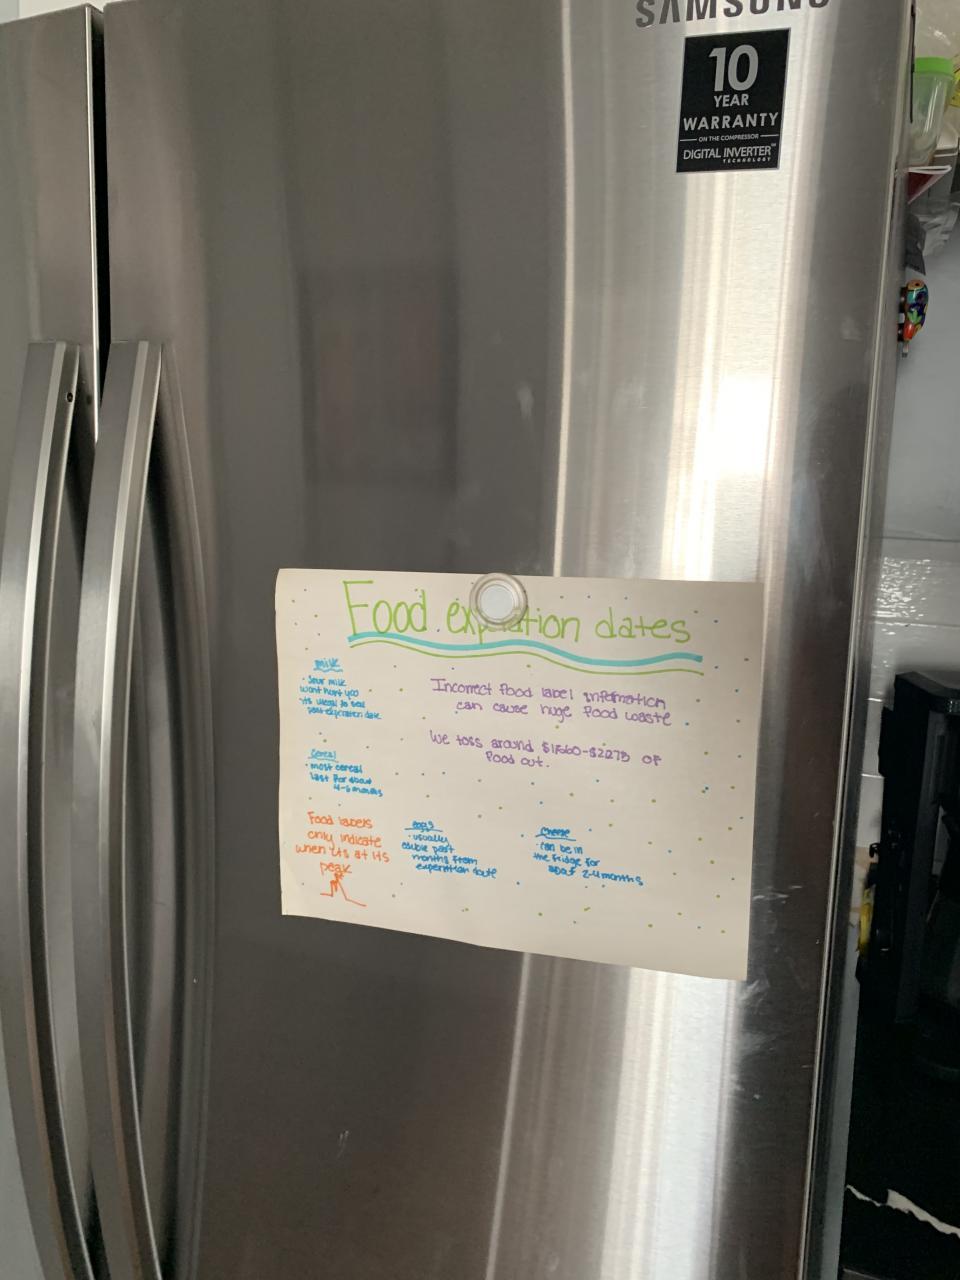 SAMSUNG
10
YEAR
WARRANTY
ON THE COMPRESSOR
DIGITAL INVERTER™
TECHNOLOGY
Food dates
milk
• Sour milk
wont hurt you
• its illegal to sell
past expiration date
Incorrect food label information
can cause huge food waste
We toss around $1,560-$2,275 of
food out.
Cereal
• most cereal
last for about
4-6 months
Food labels
only indicate
when its at its
peak
eggs
• usually
edible past
months from
experation date
Cheese
• can be in
the fridge for
about 2-4 months